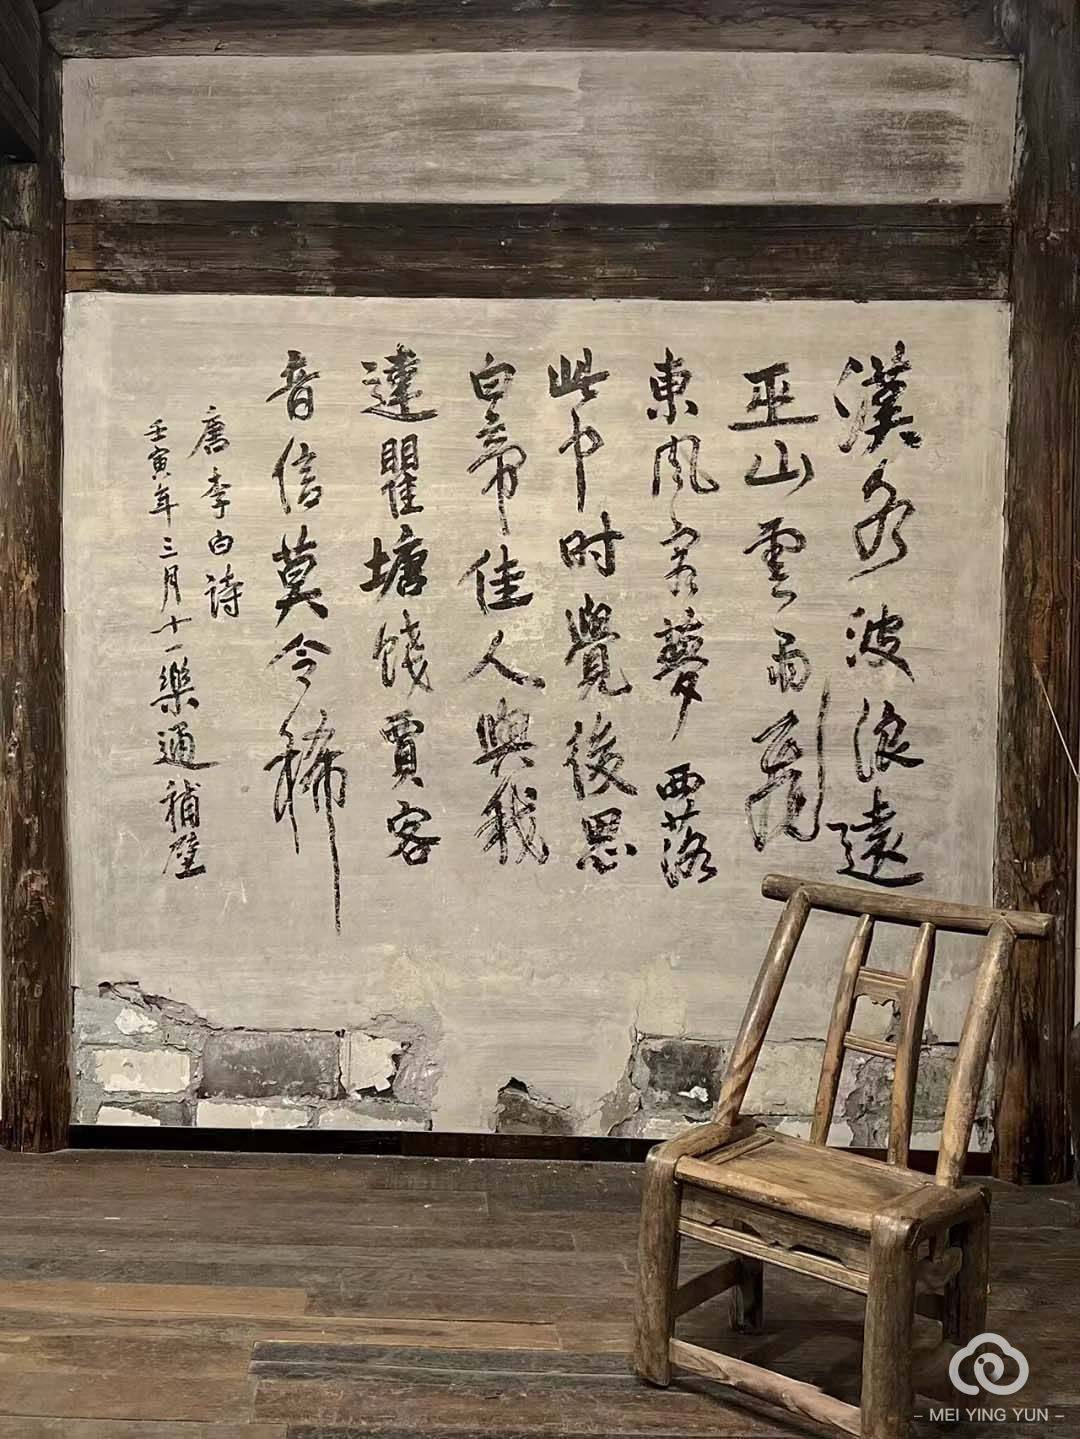 漢水波浪遠
巫山雲雨飛
東風客夢西落
此中时覺後思
白帝佳人與我
違瞿塘饒賈客
音信莫令稀
唐李白诗
壬寅年三月十一樂通補壁
– MEI YING YUN –